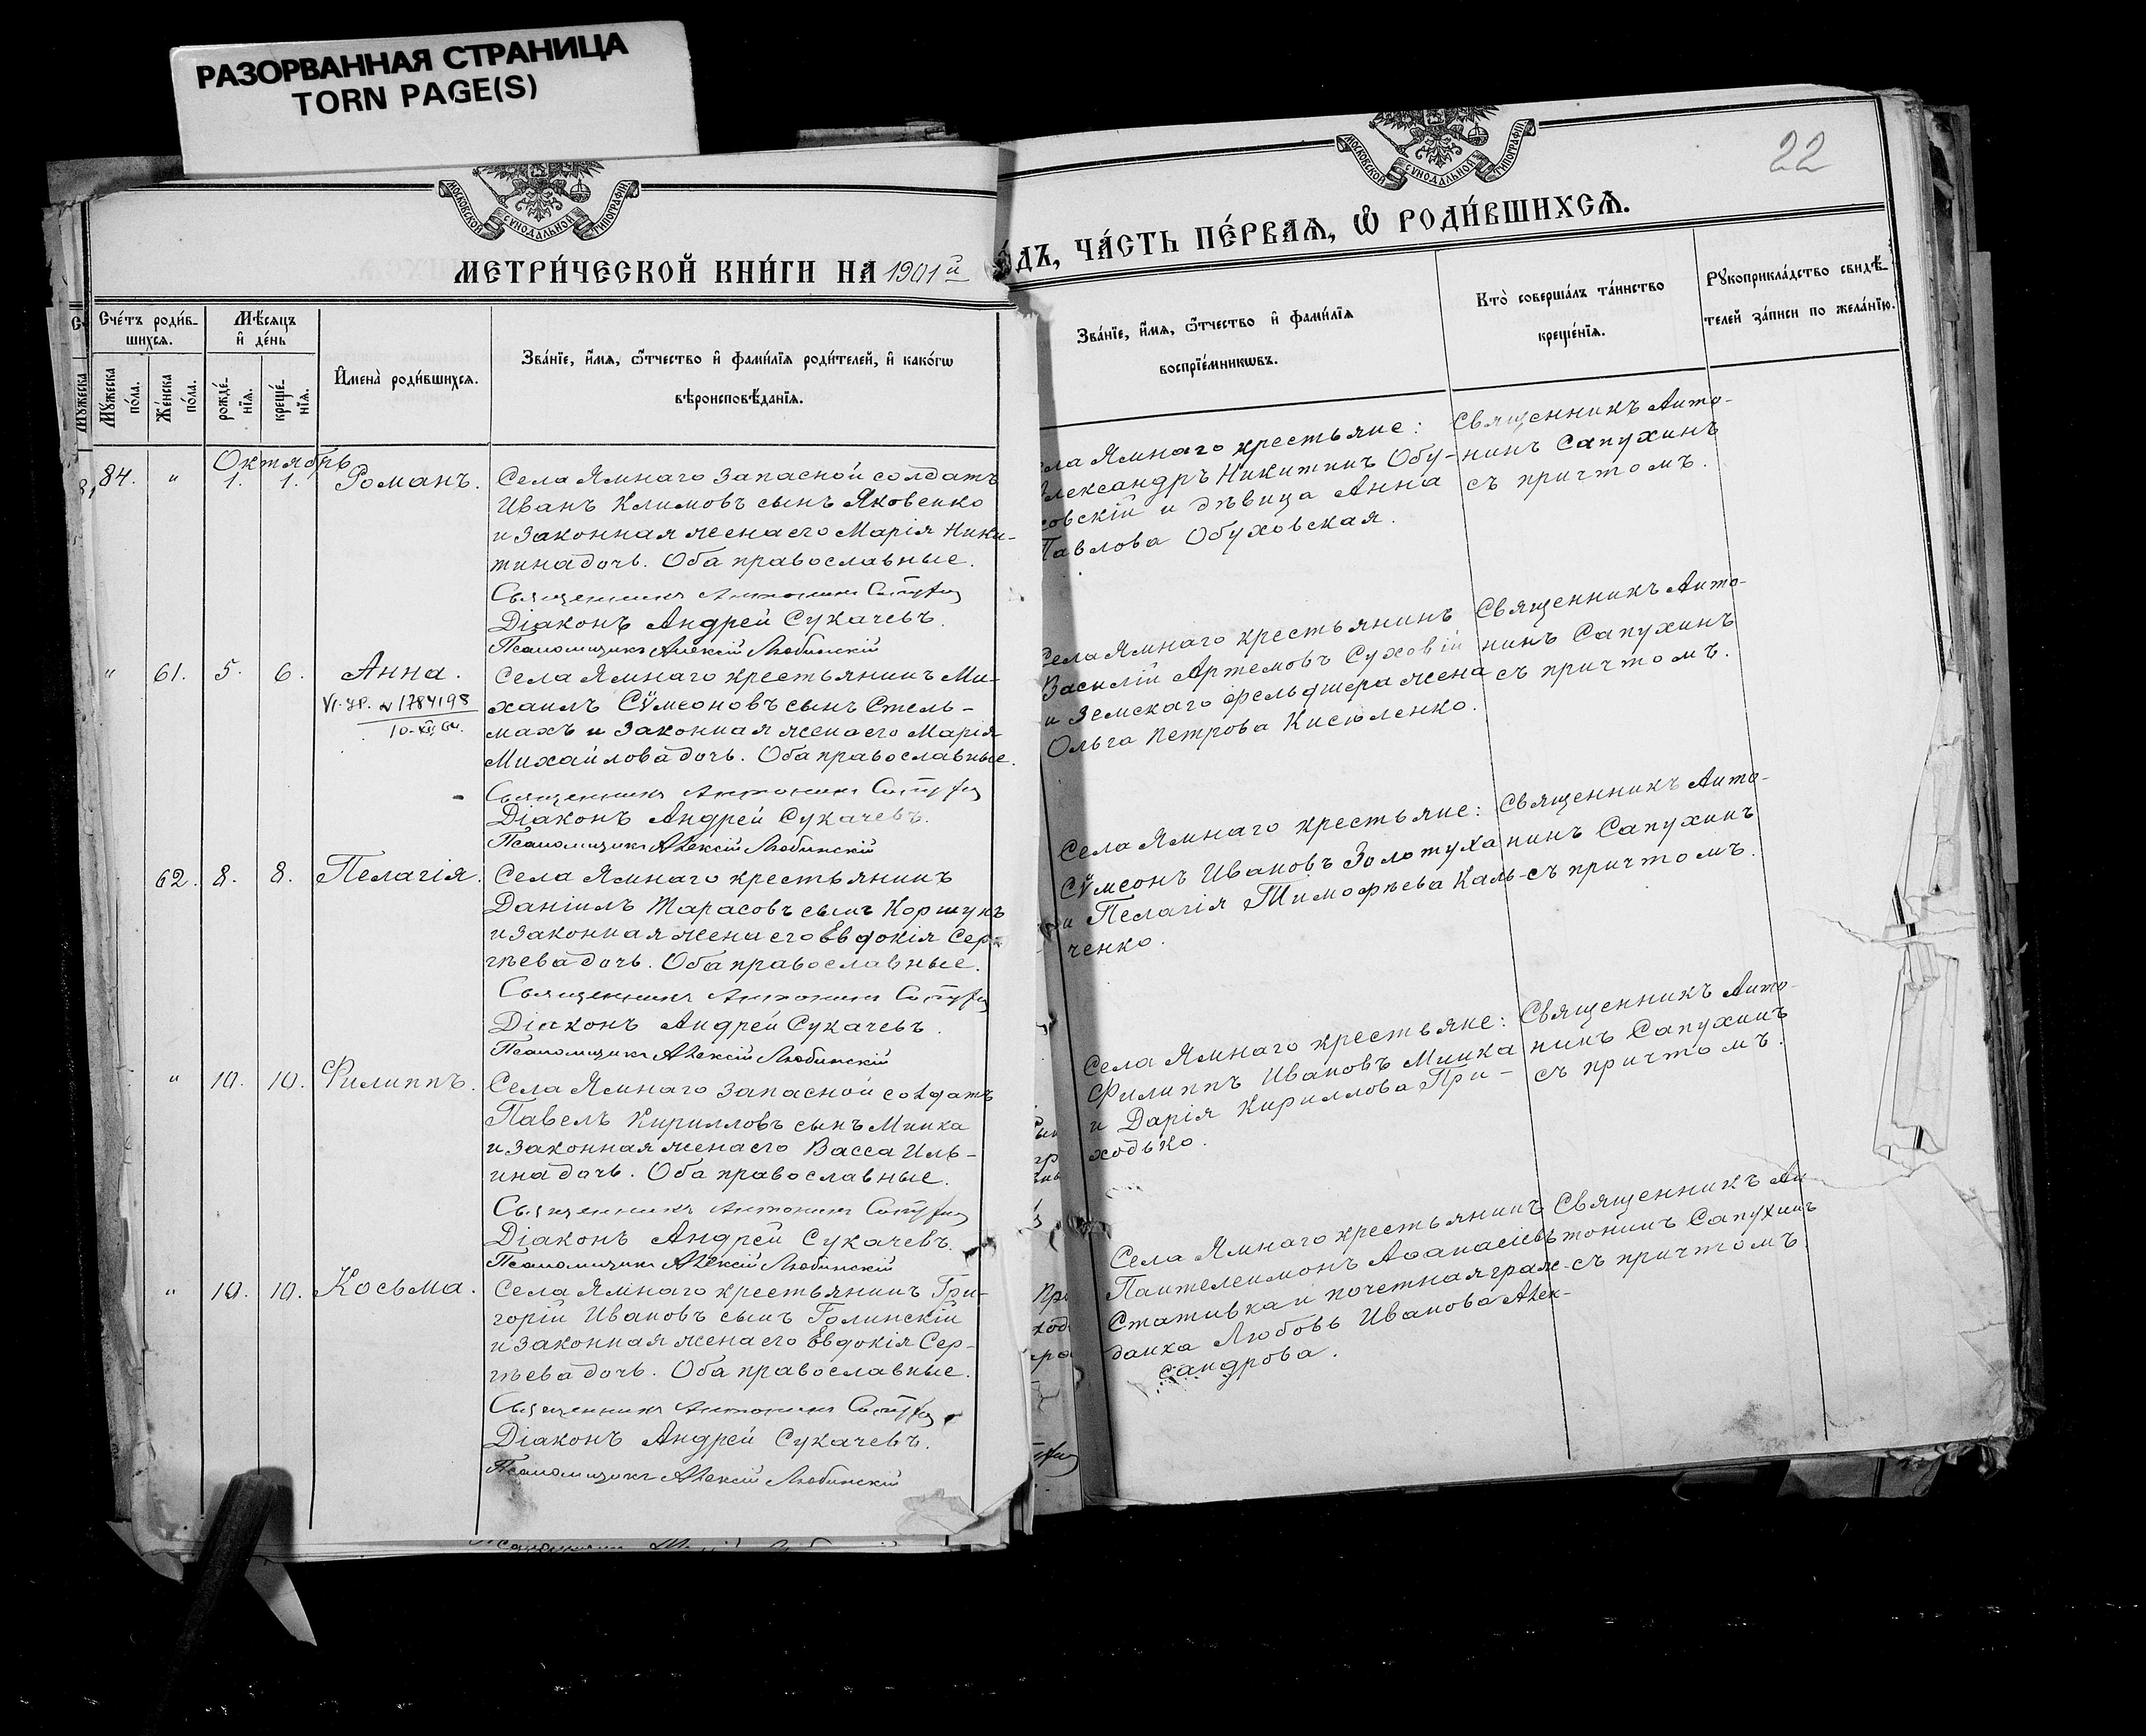 РАЗОРВАННАЯ СТРАНИЦА
TORN PAGE(S)
МОСКОВСКОЙ СѴНОДАЛЬНОЙ ТИПОГРАФІИ
МЕТРИ́ЧЕСКОЙ КНИ́ГИ НА 1901й
Сче́тъ роди́в-
шихся.
Мѣ́сяцъ
и҆ де́нь
Мꙋ́жеска
по́ла.
Же́нска
по́ла.
рожде́-
нїя.
креще́-
нїя.
И҆мена̀ роди́вшихся.
Зва́нїе, и҆́мя, ѻ҆́тчество и҆ фами́лїя роди́телей, и҆ како́гѡ
вѣроисповѣ́данїя.
Октябрь
84. " 1. 1. Романъ.
Села Ямнаго запасной солдатъ
Иванъ Климовъ сынъ Яковенко
и законная жена его Марія Ники-
тина дочь. Оба православные.
Священникъ Антонинъ
Діаконъ Андрей Сукачевъ.
Псаломщикъ Алексій Любинскій
" 61. 5. 6. Анна.
VI-ЯР. № 1784198
Села Ямнаго крестьянинъ Ми-
хаилъ Сѵмеоновъ сынъ Стель-
махъ и законная жена его Марія
Михайлова дочь. Оба православные.
Священникъ Антонинъ
Діаконъ Андрей Сукачевъ.
Псаломщикъ Алексій Любинскій
62. 8. 8. Пелагія.
Села Ямнаго крестьянинъ
Даніилъ Тарасовъ сынъ Коршунъ
и законная жена его Евдокія Сер-
гѣева дочь. Оба православные.
Священникъ Антонинъ
Діаконъ Андрей Сукачевъ.
Псаломщикъ Алексій Любинскій
" 10. 10. Филиппъ.
Села Ямнаго запасной солдатъ
Павелъ Кирилловъ сынъ Минка
и законная жена его Васса Иль-
ина дочь. Оба православные.
Священникъ Антонинъ
Діаконъ Андрей Сукачевъ.
Псаломщикъ Алексій Любинскій
" 10. 10. Косьма.
Села Ямнаго крестьянинъ Гри-
горій Ивановъ сынъ Голинскій
и законная жена его Евдокія Сер-
гѣева дочь. Оба православные.
Священникъ Антонинъ
Діаконъ Андрей Сукачевъ.
Псаломщикъ Алексій Любинскій
22
МОСКОВСКОЙ СѴНОДАЛЬНОЙ ТИПОГРАФІИ
ДЪ, ЧА́СТЬ ПЕ́РВАѦ, Ѡ҆ РОДИ́ВШИХСѦ.
Зва́нїе, и҆́мя, ѻ҆́тчество и҆ фами́лїя
воспрїе́мникѡвъ.
Кто̀ соверша́лъ та́инство
креще́нїя.
Рꙋкоприкла́дство свидѣ́-
телей за́писи по жела́нїю.
ла Ямнаго крестьяне:
лександръ Никитинъ Обу-
совскій и дѣвица Анна
Павлова Обуховская.
Священникъ Анто-
нинъ Сапухинъ
съ причтомъ.
Села Ямнаго крестьянинъ
Василій Артемовъ Суховій
и Земскаго фельдшера жена
Ольга Петрова Киселенко.
Священникъ Анто-
нинъ Сапухинъ
съ причтомъ.
Села Ямнаго крестьяне:
Сѵмеонъ Ивановъ Золотуха
и Пелагія Тимофѣева Каль-
ченко.
Священникъ Анто-
нинъ Сапухинъ
съ причтомъ.
Села Ямнаго крестьяне:
Филиппъ Ивановъ Минка
и Дарія Кириллова При-
ходько.
Священникъ Анто-
нинъ Сапухинъ
съ причтомъ.
Села Ямнаго крестьянинъ
Пантелеимонъ Аѳанасіевъ
Стативка и почетная граж-
данка Любовь Иванова Алек-
сандрова.
Священникъ Ан-
тонинъ Сапухинъ
съ причтомъ.